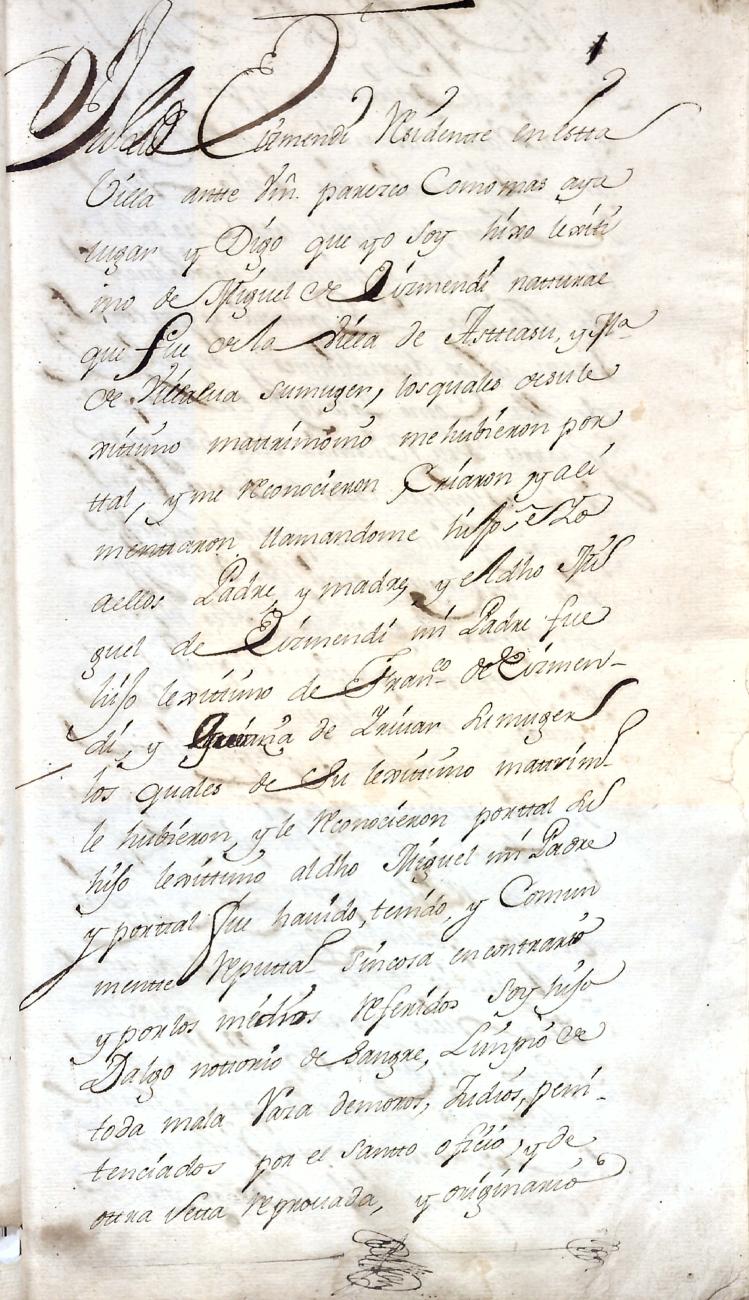 1
de Eizmendi Residente en estta
Villa antte Vm. parezco Como mas aya
lugar y Digo que yo soy hixo lexiti
mo de Miguel de Eizmendi natturae
que fue de la Villa de Astteasu, y Ma
de Villalua su muger, los quales de su le
xitimo mattrimonio me hubieron por
ttal, y me Reconocieron Criaron y ali
menttaron llamandome hijo, e Yo
a ellos Padre, y madre, y el dho Mi
guel de Eizmendi mi Padre fue
hijo lexitimo de Franco. de Eizmen-
di, y de Yruar su muger
los quales de su lexitimo mattrimo
le hubieron, y le Reconocieron por ttal su
hijo lexittimo al dho Miguel mi Padre
y por ttal fue hauido, tenido, y Comun
mentte Reputtado sin cosa en contrario
y por los medios Referidos soy hijo
Dalgo nottorio de sangre, Limpio de
toda mala Raza de moros, Judios, peni-
tenciados por el santto oficio, y de
ottra Setta Reprouada, y originario